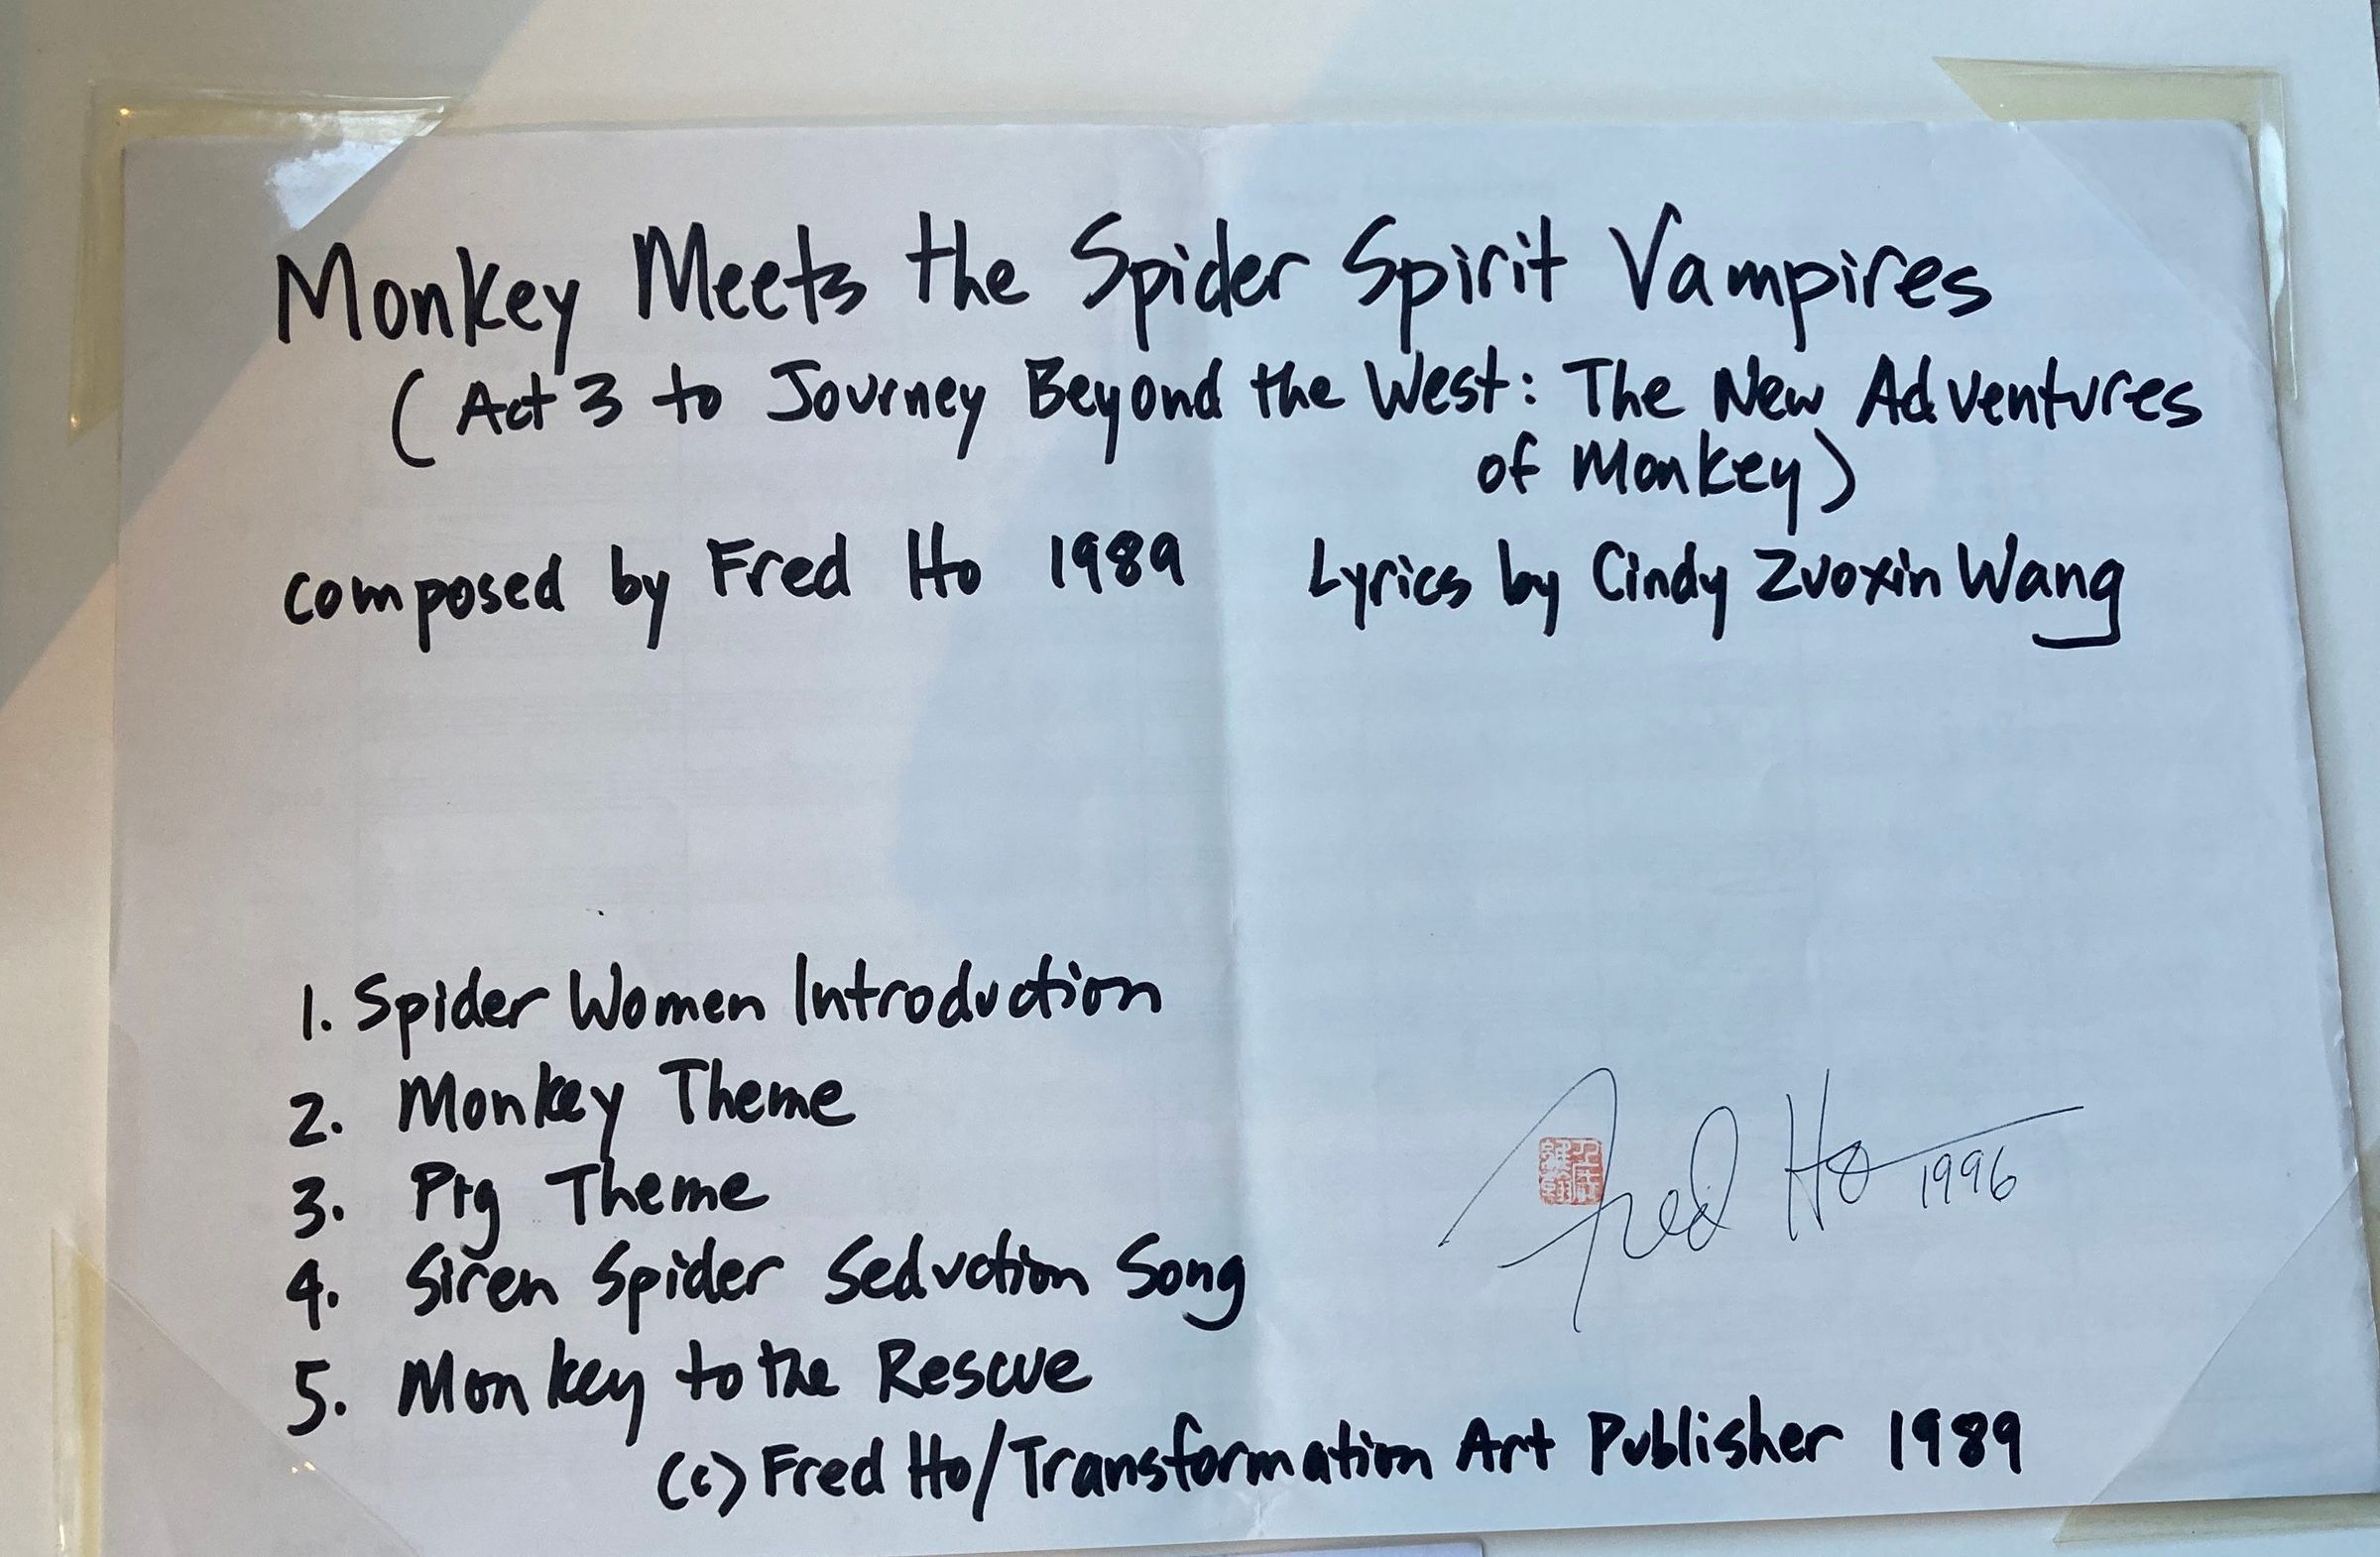 Monkey Meets the Spider Spirit Vampires
(Act 3 to Journey Beyond the West: The New Adventures
of Monkey)
composed by Fred Ho 1989 Lyrics by Cindy Zuoxin Wang
1. Spider Women Introduction
2. Monkey Theme
3. Pig Theme
4. Siren Spider Seduction Song
5. Monkey to the Rescue
Fred Ho 1996
(c) Fred Ho/Transformation Art Publisher 1989